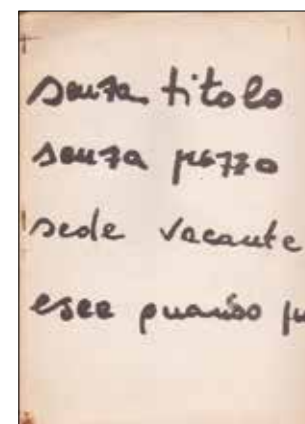 senza titolo
senza prezzo
sede vacante
esce quando